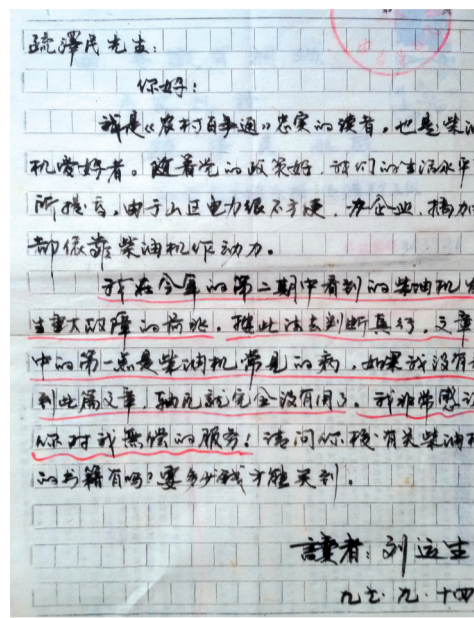 疏澤民先生：
你好！
我是《农村百事通》忠实的读者，也是柴油
机爱好者。随着党的政策好，我们的生活水平
所提高，由于山区电力很不方便，办企业，搞加
都依靠柴油机作动力。
我在今年的第二期中看到的柴油机发
生重大故障的前兆，按此法去判断真行，文章
中的第一点是柴油机常见的病，如果我没有看
到此篇文章，轴瓦就完全没有用了。我非常感谢
你对我无偿的服务！请问你按有关柴油
的书籍有吗？要多少钱才能买到。
讀者：刘运生
九七．九．十四